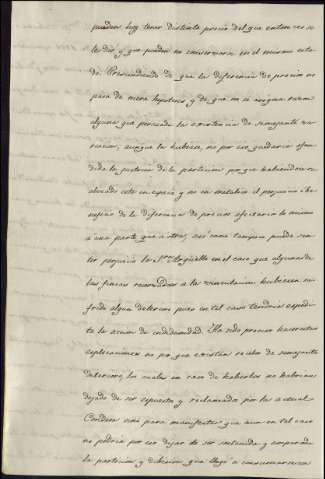 puedan hoy tener distinto precio del que entonces se
les dió y que puedan no conservarse en el mismo esta-
do. Prescindiendo de que la diferencia de precios no
pasa de mera hipotesis, y de que no se asigna razon
alguna que persuada la existencia de semejante va-
riacion, aunque la hubiera, no por eso quedaria ofen-
dida la justicia de la particion por que habiendose re-
alizado esta en especie y no en metalico el perjuicio ó be-
neficio de la diferencia de precios afectaria lo mismo
á una parte que á otra, asi como tampoco puede sen-
tir perjuicio la Sra. Argüelles en el caso que algunas de
las fincas reservadas a las vinculaciones hubiesen su-
frido algun deterioro pues en tal caso tendria espedi-
ta la accion de indemnidad. Ha sido preciso hacer estas
esplicaciones no por que existan recelos de semejante
deterioro, los cuales en caso de haberlos no habrian
dejado de ser espuestos y reclamados por la actual
Condesa sino para manifestar que aun en tal caso
no podria por eso dejar de ser sostenida y amparada
la particion y division que llegó á consumarse con